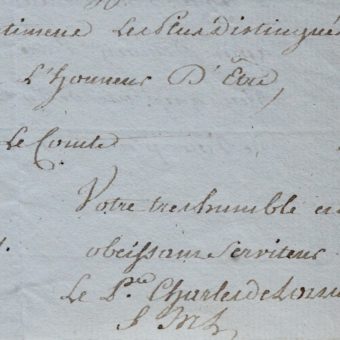 timens les Plus distingués
L'honneur D'Être,
Le Comte
Votre tres humble et
obeissant serviteur
Le P.ce Charles de